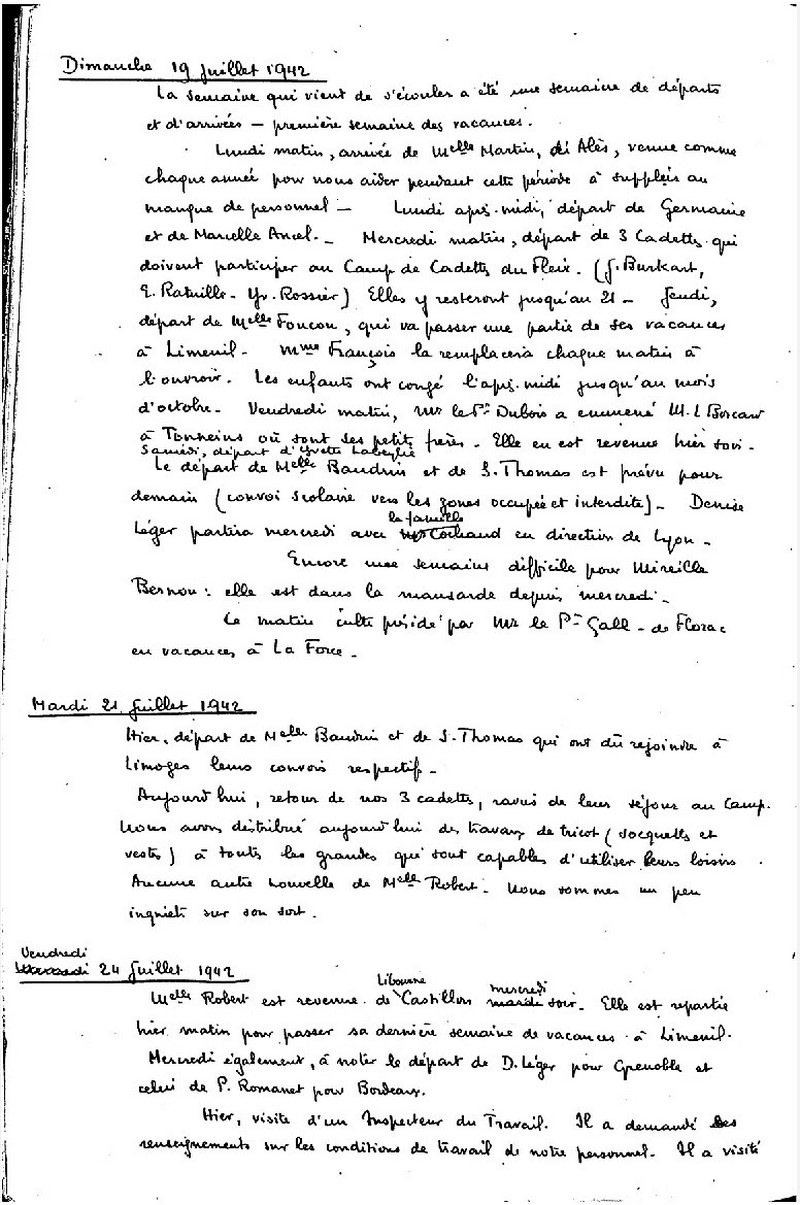 Dimanche 19 Juillet 1942
La semaine qui vient de s'écouler a été une semaine de départs
et d'arrivées – première semaine des vacances.
Lundi matin, arrivée de Melle Martin, de Alès, venue comme
chaque année pour nous aider pendant cette période à suppléer au
manque de personnel – Lundi après-midi, départ de Germaine
et de Marcelle Ancel. – Mercredi matin, départ de 3 Cadettes qui
doivent participer au Camp de Cadettes du Fleix. (J. Burkart,
E. Rataille - Yv. Rossier) Elles y resteront jusqu'au 21 – Jeudi,
départ de Melle Foucou, qui va passer une partie de ses vacances
à Limeuil. Mme François la remplacera chaque matin à
l'ouvroir. Les enfants ont congé l'après-midi jusqu'au mois
d'octobre. Vendredi matin, Mr le Pr Dubois a emmené M. L.
à Tonneins où sont ses petits frères. Elle en est revenue hier soir.
Samedi, départ d'Yvette Labeylie
Le départ de Melle Baudrin et de S. Thomas est prévu pour
demain (convoi scolaire vers les zones occupée et interdite) – Denise
la famille
Léger partira mercredi avec Cochaud en direction de Lyon –
Encore une semaine difficile pour Mireille
Bernou : elle est dans la mansarde depuis mercredi –
Ce matin culte présidé par Mr le Pr Gall – de Florac
en vacances à La Force –
Mardi 21 Juillet 1942
Hier, départ de Melle Baudrin et de S. Thomas qui ont dû rejoindre à
Limoges leurs convois respectifs –
Aujourd'hui, retour de nos 3 cadettes, ravies de leur séjour au Camp.
Nous avons distribué aujourd'hui des travaux de tricot (socquettes et
vestes) à toutes les grandes qui sont capables d'utiliser leurs loisirs
Aucune autre nouvelle de Melle Robert. Nous sommes un peu
inquiets sur son sort.
Vendredi
24 Juillet 1942
Libourne mercredi
Melle Robert est revenue de Castillon mardi soir. Elle est repartie
hier matin pour passer sa dernière semaine de vacances à Limeuil.
Mercredi également, à noter le départ de D. Léger pour Grenoble et
celui de P. Romanet pour Bordeaux.
Hier, visite d'un Inspecteur du Travail. Il a demandé des
renseignements sur les conditions de travail de notre personnel. Il a visité